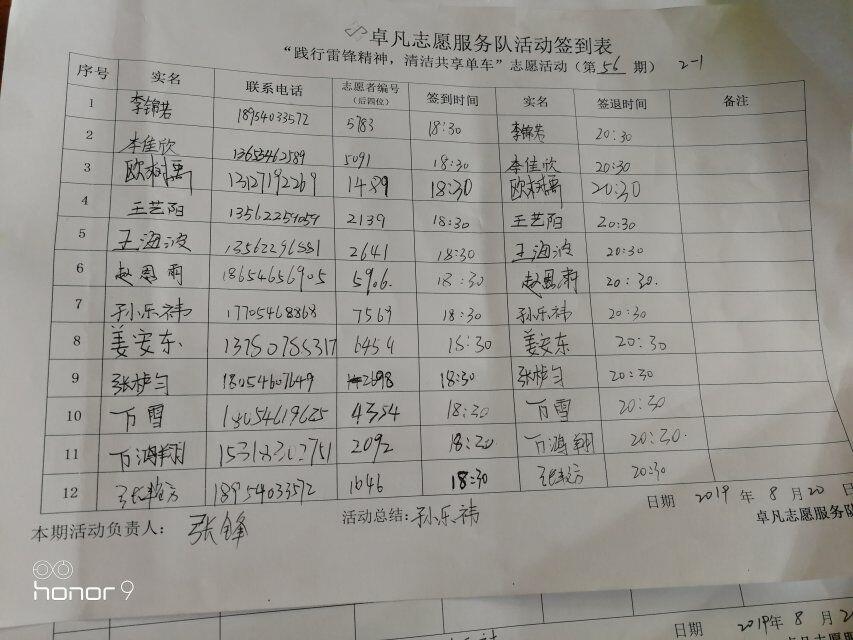 卓凡志愿服务队活动签到表
“践行雷锋精神，清洁共享单车”志愿活动（第 56 期） 2-1
序号 实名 联系电话 志愿者编号（后四位） 签到时间 实名 签退时间 备注
1 李锦若 18954033572 5783 18:30 李锦若 20:30
2 李佳欣 13653462589 5091 18:30 李佳欣 20:30
3 欧树禹 13127192269 1489 18:30 欧树禹 20:30
4 王艺阳 13562259059 2139 18:30 王艺阳 20:30
5 王海波 13562296881 2641 18:30 王海波 20:30
6 赵恩雨 18654656905 5906. 18:30 赵恩雨 20:30.
7 孙乐祎 17705468868 7569 18:30 孙乐祎 20:30
8 姜安东. 13780785317 6454 18:30 姜安东 20:30
9 18054607649 2698 18:30 20:30
10 万雪 18054619625 4354 18:30 万雪 20:30
11 万鸿翔 15318302751 2092 18:30 万鸿翔 20:30.
12 18954033572 1046 18:30 20:30
日期 2019 年 8 月 20 日
本期活动负责人： 张锋 活动总结： 孙乐祎
卓凡志愿服务队
honor 9
日期 2019年 8 月 2
孙乐祎
卓凡志愿服务